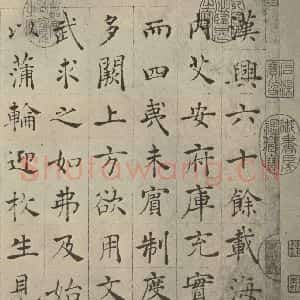 漢興六十餘載海
內艾安府庫充實
而四夷未賓制度
多闕上方欲用文
武求之如弗及始
以蒲輪迎枚生見
Shufawang.cn